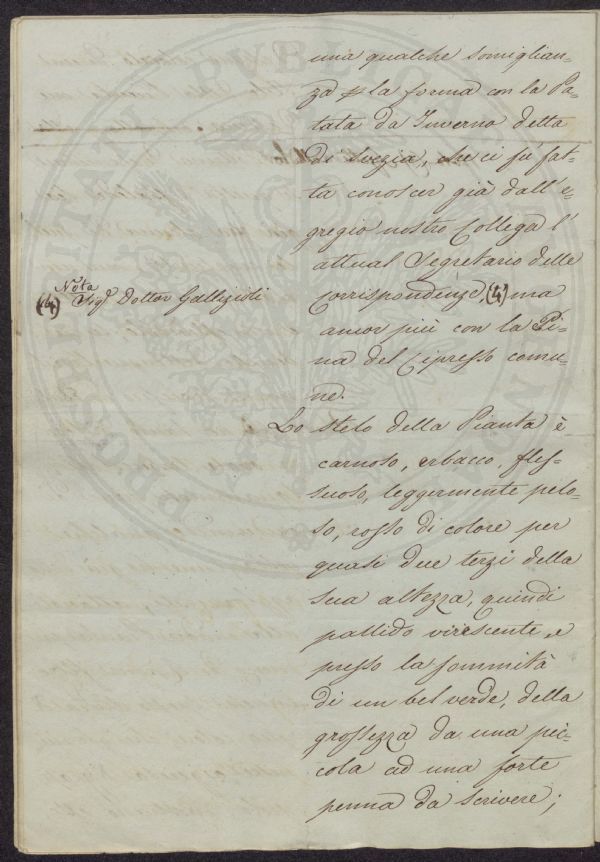 una qualche somiglian-
za p la forma con la Pa-
tata da Inverno detta
di Svezia, che ci fù fat-
ta conoscer già dall'e-
gregio nostro Collega l'
attual Segretario delle
Corrispondenze, (4) ma
ancor più con la Pi-
na del Cipresso comu-
ne.
Nota
(4) Sig.r Dottor Gallizioli
Lo stelo della Pianta è
carnoso, erbaceo, fles-
suoso, leggermente pelo-
so, rosso di colore per
quasi due terzi della
sua altezza, quindi
pallido virescente, e
presso la sommità
di un bel verde, della
grossezza da una pic-
cola ad una forte
penna da scrivere;
PROSPERITATI PUBLICAE